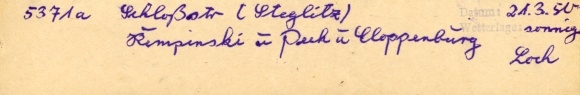 5371a Schloßstr (Steglitz) 21.3.50
Kempinski u Peek u Cloppenburg sonnig
Loch
Datum:
Wetterlage: